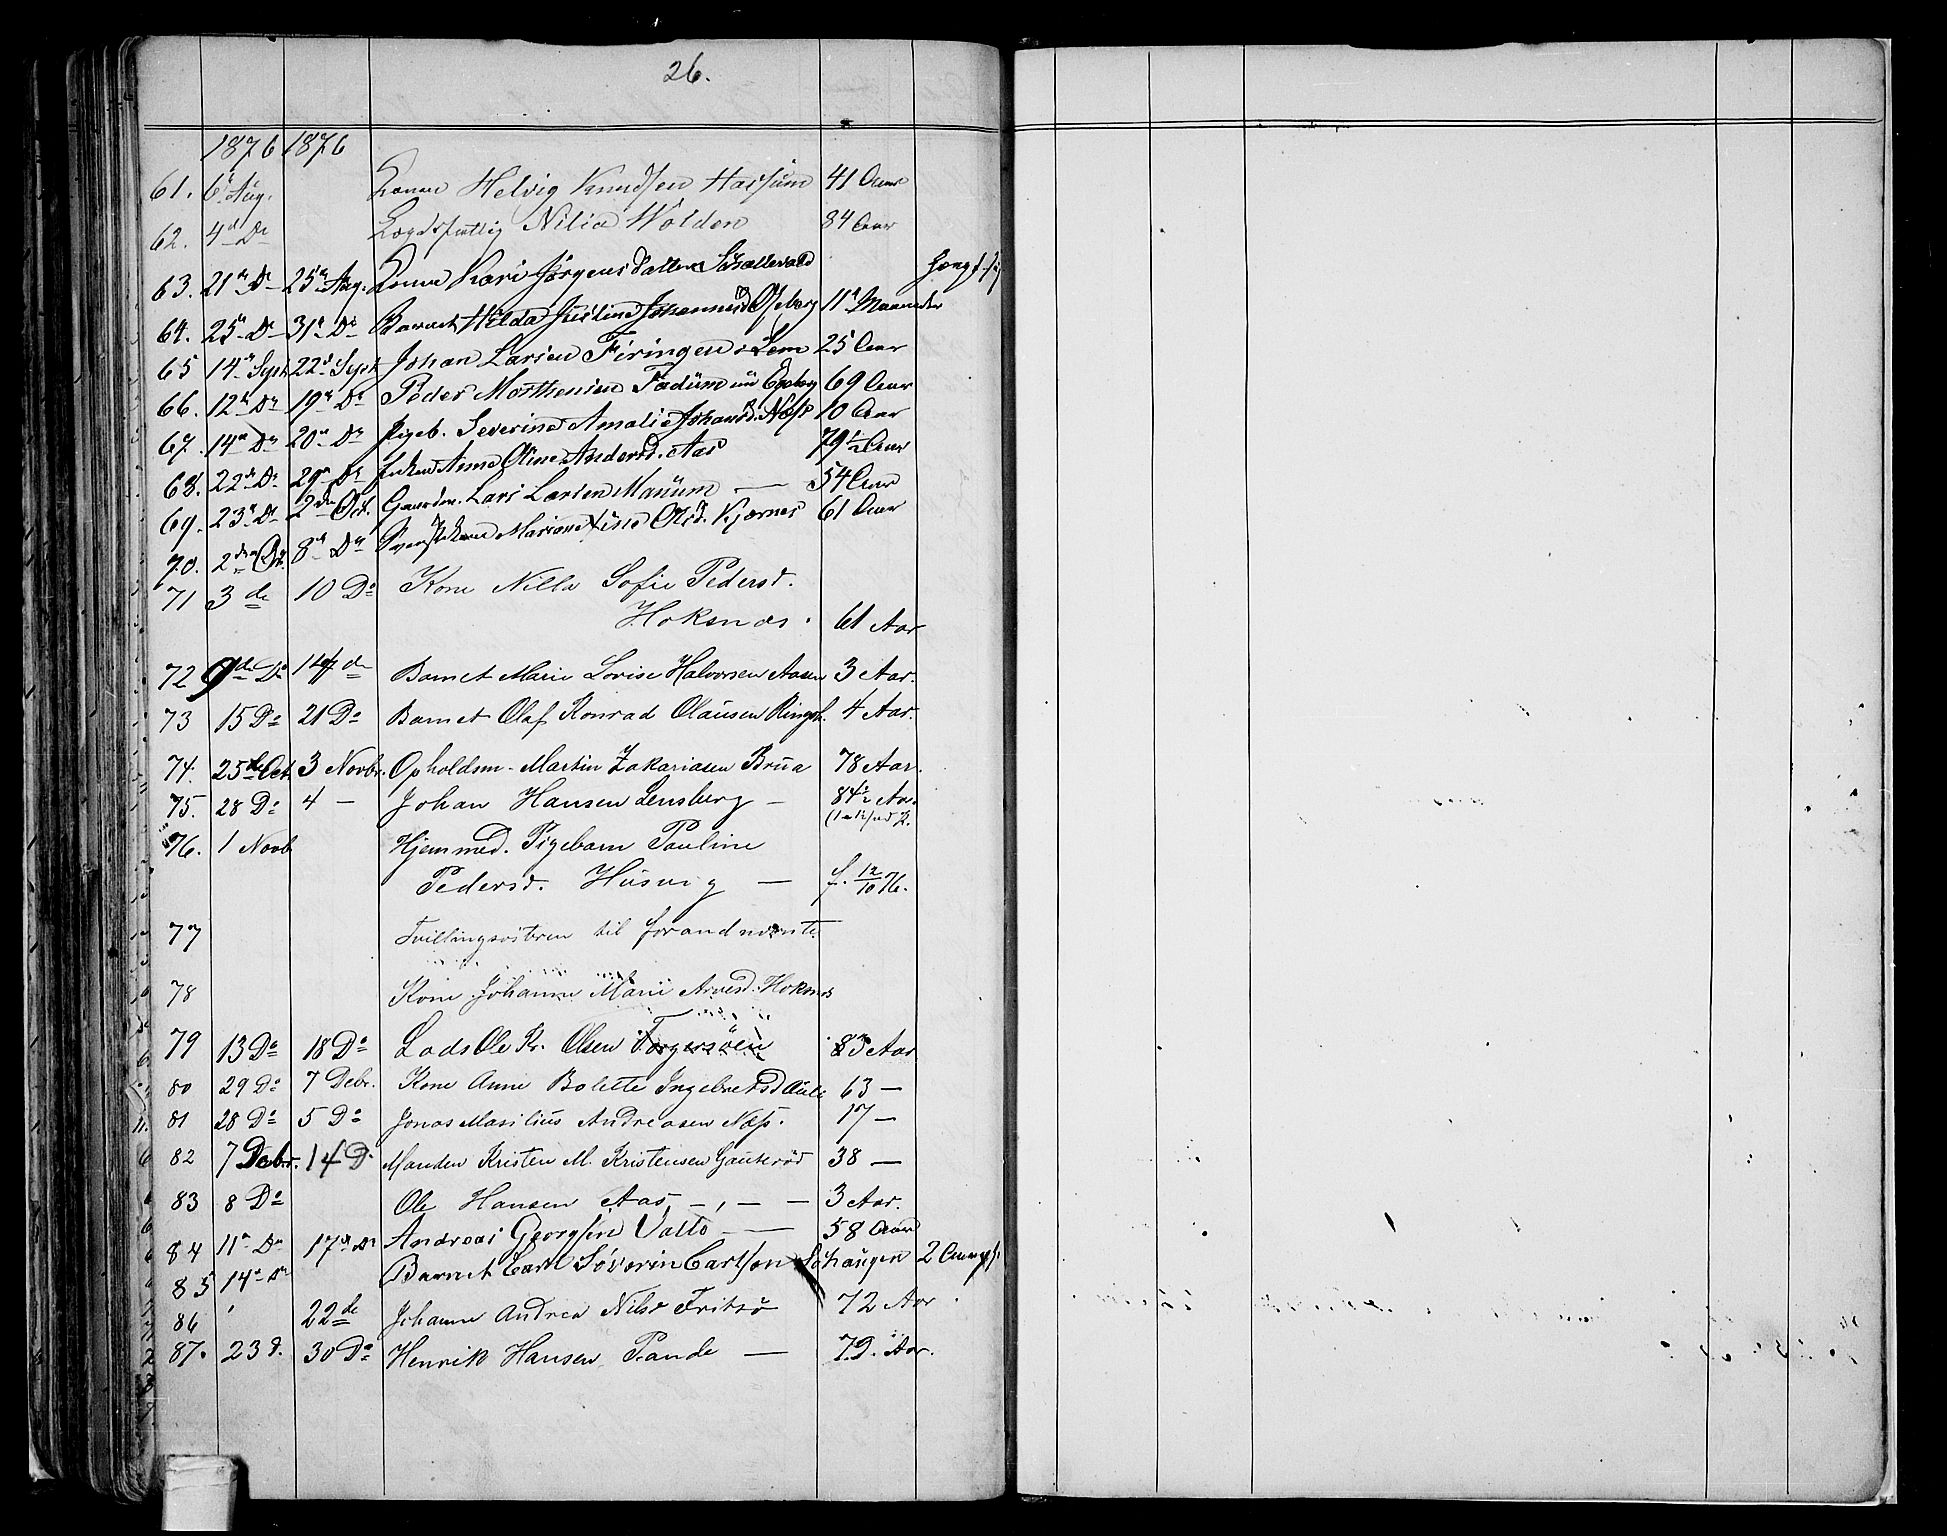 26.
1876 1876
61. 6te Aug. Konen Helvig Knudsen Hassum 41 Aar
62. 4de Do Lægdsfattig Nilia Wolden 84 Aar
63. 21de Do 25de Aug. Konen Kari Jörgensdatter
64. 25de Do 31te Do Barnet Hilda Justine Johannesd Oseberg 11 Maaneder
65 14de Sept 22de Sept Johan Larsen Firingen i Sem 25 Aar
66. 12te Do 19de Do Peder Morthensen Fadüm 69 Aar
67. 14de Do 20de Do Pigeb. Severine Amalie Johansd. Næss 10 Aar
68. 22de Do 29de Do Enken Anne Oline Andersd. Aas 79½ Aar
69. 23de Do 2den Oct. Gaardm. Lars Larsen Manüm — 54 Aar
70. 2den Oct. 8de Do Olsd. Kjærnes 61 Aar
71 3de 10 Do Kone Nilla Sofie Pedersd.
Hoksnæs. 61 Aar
72 9de Do 14de Barnet Marie Lovise Halvorsen Aasen 3 Aar.
73 15 Do 21 Do Barnet Olaf Konrad Olausen Ringsh. 4 Aar.
74. 25de Oct. 3 Novbr. Opholdsm. Martin Zakariasen Brüa 78 Aar.
75. 28 Do 4 — Johan Hansen Lensberg — 84½ Aar.
76. 1 Novb Hjemmed. Pigebarn Pauline
Pedersd. Husvig — f. 12/10 76.
77 Tvillingsösteren til forandnævnte
78 Kone Johanne Marie Arvesd. Hoksnæs
79 13 Do 18 Do Lods Ole Kr. Olsen Torgersöen 83 Aar
80 29 Do 7 Debr. Kone Anne Bolette Ingebretsd Auli 63 —
81 28 Do 5 Do Jonas Masilius Andreasen Næss. 17 —
82 7 Debr. 14 D. Manden Kristen M. Kristensen Gauterød 38 —
83 8 Do Ole Hansen Aas — , — — 3 Aar.
84 11te Do 17de Do Andreas Georgsen Vallö — 58 Aar
85 14de Do Barnet Carl Söverin Carlson Söhaugen 2 Aar
86 22de Johanne Andrea Nilsd Fritsö 72 Aar.
87. 23 d. 30 Do Henrik Hansen Rande — 79. Aar.